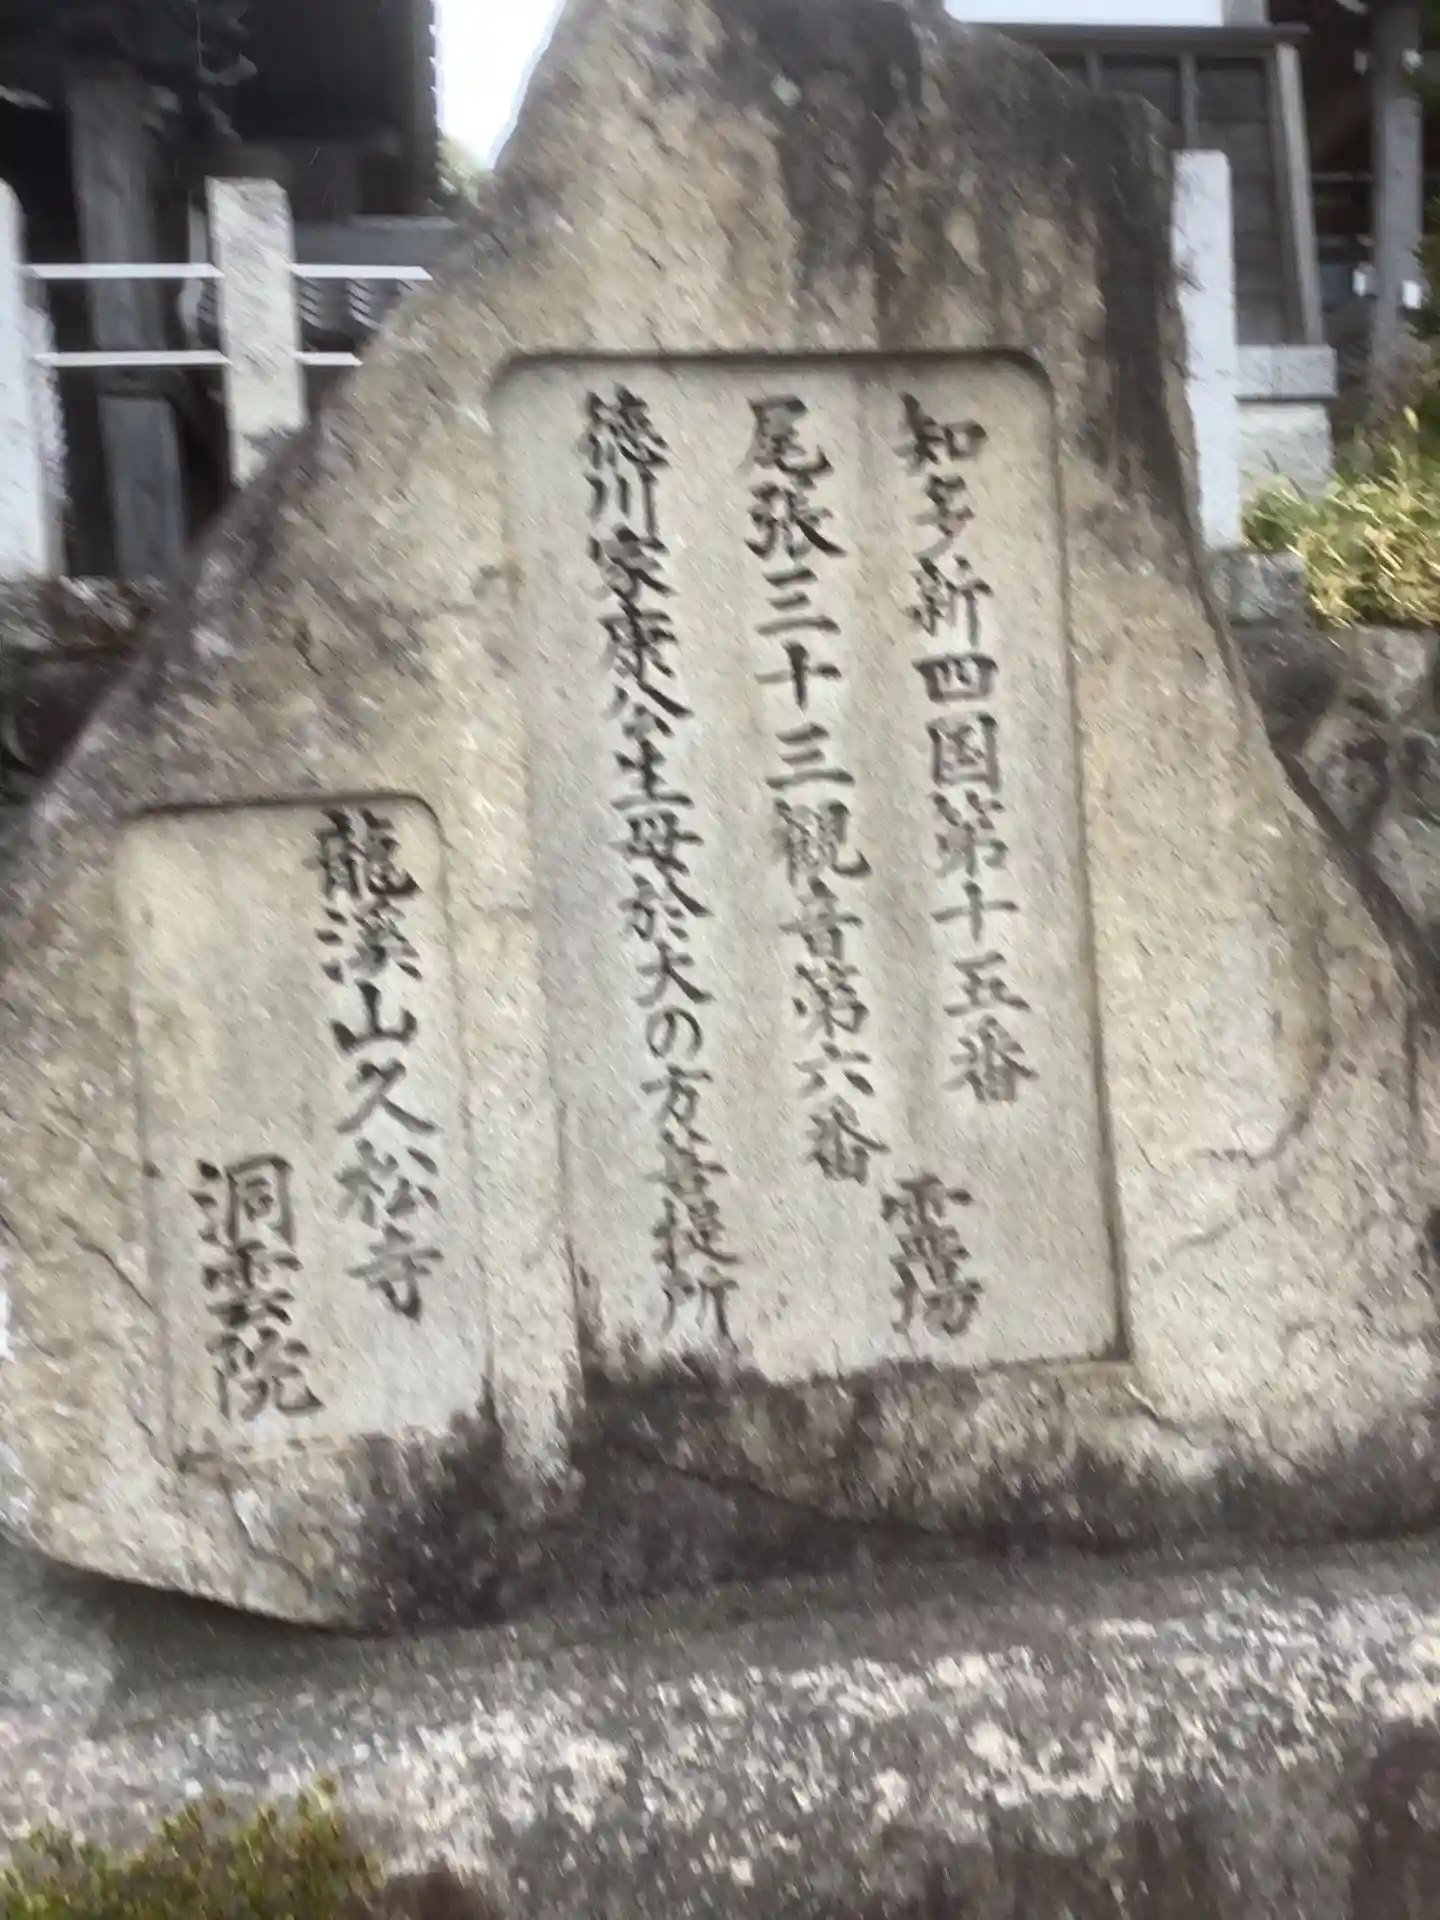 知多新四国第十五番
尾張三十三観音第六番
霊場
徳川家康公生母於大の方菩提所
龍渓山久松寺
洞雲院